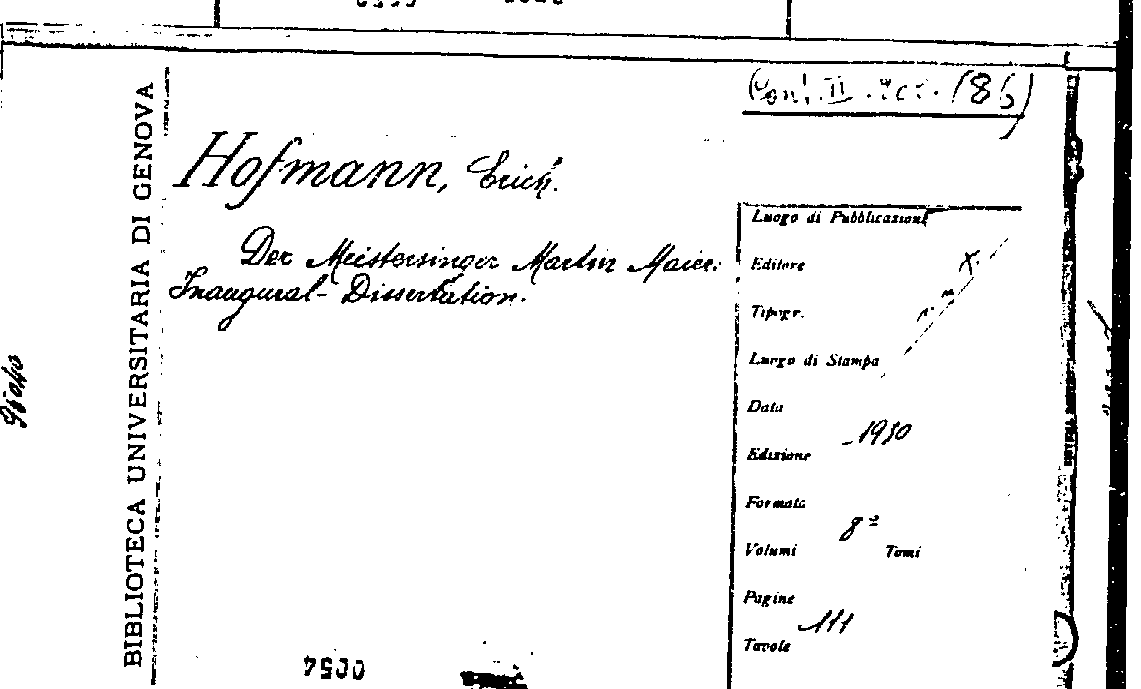 (186)
BIBLIOTECA UNIVERSITARIA DI GENOVA
Hofmann, Erich.
Der Meistersinger Martin Maier.
Inaugural-Dissertation.
Luogo di Pubblicazione
Editore
Tipogr.
Luogo di Stampa
Data
1930
Edizione
Formato
8º
Volumi Tomi
Pagine
111
Tavole
0054